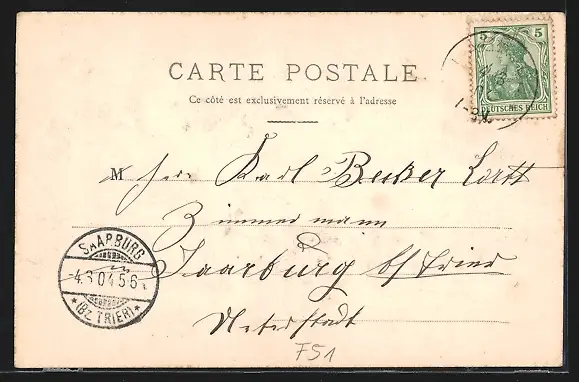 CARTE POSTALE
Ce côté est exclusivement réservé à l'adresse
5 5
DEUTSCHES REICH
M Herr Karl Becker
Zimmermann
Saarburg b/ Trier
Unterstadt
SAARBURG
-4.3.04.5-6
(BZ. TRIER)
F51